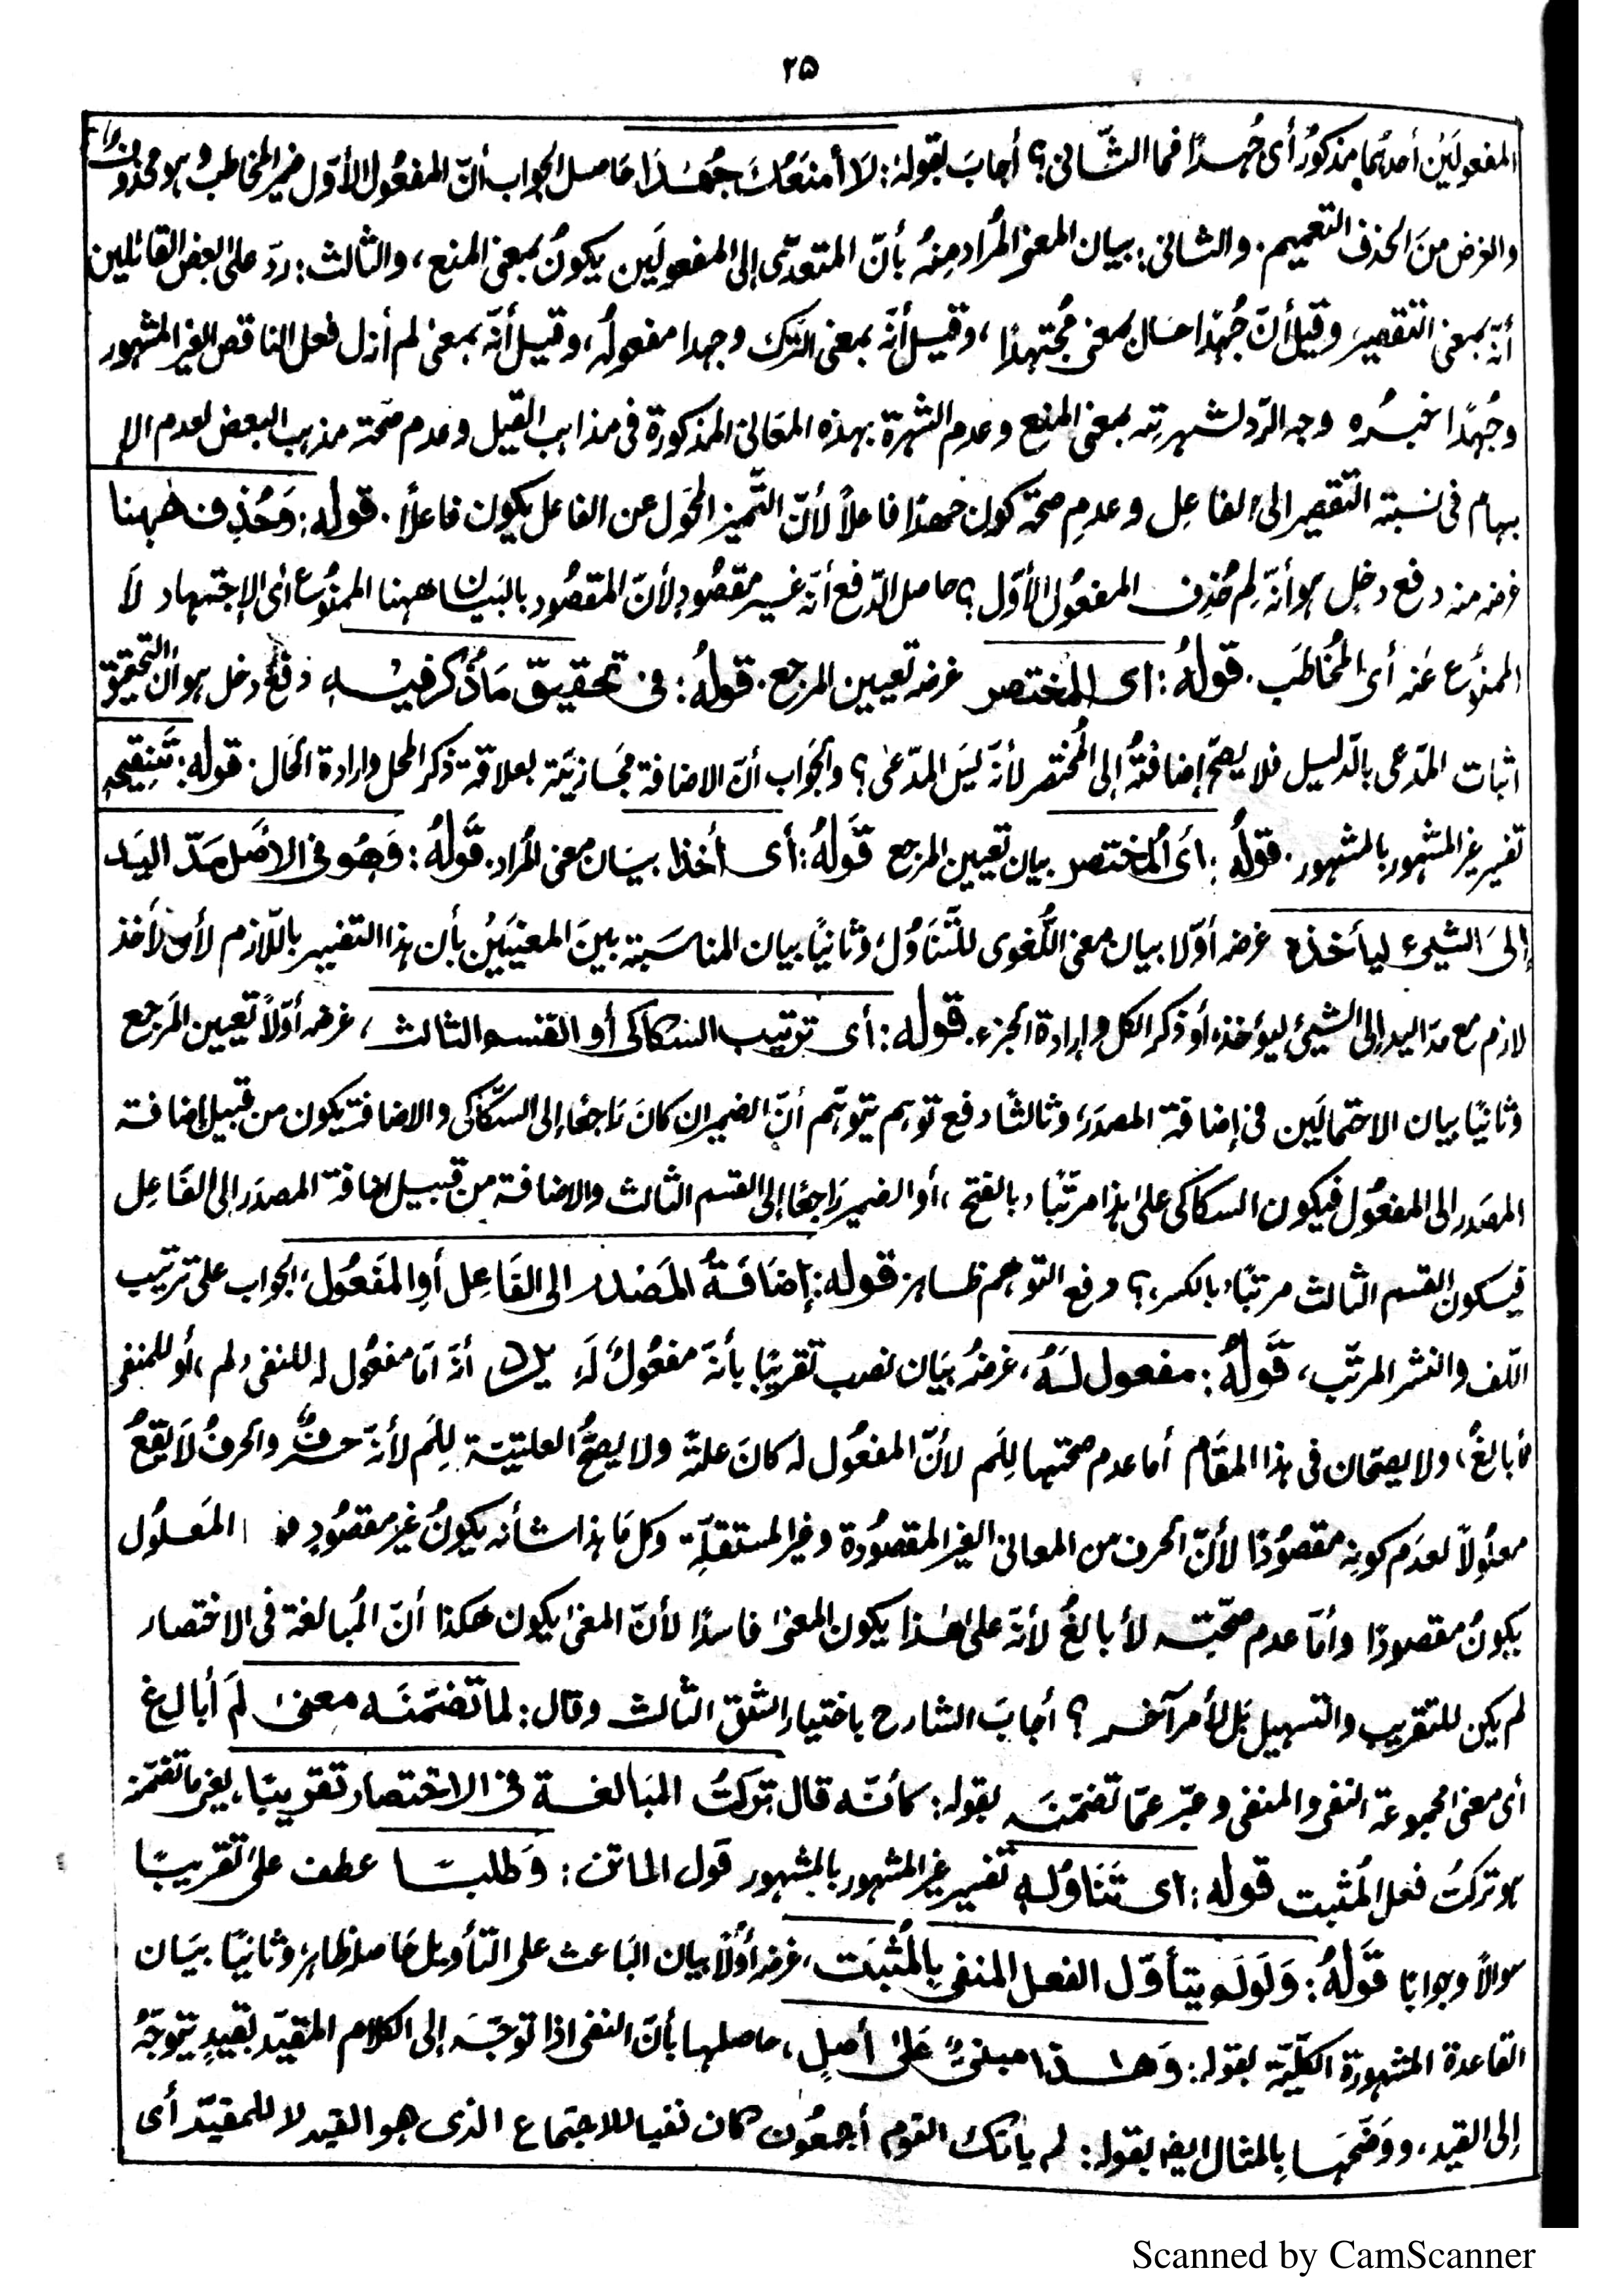 ٢٥
المفعولَيْن أحدهُما مذكورٌ أى جُهدًا فما الثّانى؟ أجابَ بقوله: لَا أمنَعُكَ جُهْدًا حَاصل الجواب أنّ المفعُول الأوّل ضمير المخاطب وهو محذوف
والغرض منَ الحذف التعميم. والثانى: بيان المعنى المُراد مِنهُ بأنّ المتعدّى إلى المفعولَين يكونُ بمعنى المنع، والثالث: ردّ على البعض القائلين
أنّه بمعنى التقصير وقيل أنّ جُهدًا حَال بمعنى مُجتهدًا، وقيل أنّه بمعنى الترك وجهدا مفعولُه، وقيل أنّه بمعنى لم أزل فعل الناقص الغير المشهور
وجُهدًا خبرُه وجه الرّد لشهرتِه بمعنى المنع وعدم الشهرة بهذه المعَانى المذكورة فى مذاهب القيل وعدم صحّته مذهب البعض لعدم الإ
بهام فى نسبته التّقصير الى الفاعِل وعدمِ صحّة كون جهدًا فاعلًا لأنّ التّميز المحوّل عن الفاعل يكون فاعلًا. قوله: وَحُذِف ههنا
غرضه منه دفع دخل هو أنّه لِم حُذِف المفعُول الأوّل؟ حاصل الدّفع أنّه غير مقصُودٍ لأنّ المقصُود بالبيَان ههنا الممنُوع أى الإجتهاد لَا
الممنُوع عَنه أى المُخَاطَب. قولهُ: اى المختصر غرضه تعيين المرجع. قولهُ: فى تحقيق مَا ذُكر فيْه دفع دخل هو أن التحقيق
اثبات المدّعى بالدّليل فلا يصحّ إضافتُه إلى المُختصر لأنّه ليسَ المدّعىٰ؟ والجَواب أنّ الاضافة مجَازيّة بعلاقة ذكر المحل وارادة الحَال. قوله: تَنقيحه
تفسير غير المشهور بالمشهور. قولهُ: اىَ المُختصر بيان تعيين المرجع قَولهُ: أى أخذا بيَان معنى المُراد. قَولهُ: وَهُو فى الأصل مَدّ اليَد
إلىَ الشّيئ ليأخذه غرضه أوّلا بيان معنى اللُّغوى للتَّنَاوُل، وثانيًا بيان المناسَبة بينَ المعنيَيْن بأن هذا التفسير باللّازم لأن الأخذ
لازم مع مدّ اليد إلى الشيئ ليؤخذه أو ذكر الكل وإرادة الجزء. قوله: أى ترتيب السكاكى أو القسم الثالث، غرضه أوّلًا تعيين المَرجع
وثانيًا بيان الاحتمالَين فى إضافة المصدَر، وثالثًا دفع توهم يتوهّم أنّ الضمير ان كانَ رَاجعًا إلى السكّاكى والاضافة يكون من قبيل إضافة
المصَدر الى المفعُول فيكون السكاكى على هذا مرتّبًا، بالفتح، أو الضمير رَاجعًا إلى القسم الثالث والاضافة من قبيل إضافة المصدَر إلى الفَاعِل
فيكون القسم الثالث مرتبًا، بالكسر؟ دفع التوهم ظاهر قوله: إضَافَةُ المَصْدر الى الفَاعِل أوِ المَفعُول، الجواب على ترتيب
اللّف والنشر المرتّب، قَولهُ: مفعول لَهُ، غرضهُ بيَان نصب تقريبًا بأنّه مفعُولٌ لَه يرد أنّه امّا مفعُول له للنفى، لم، أو للمنفى
أبالغُ، ولا يصحّان فى هذا المقَام أما عدم صحّتها لِلَم لأنّ المفعُول له كانَ علّة ولا يصحُّ العليّة لِلَم لأنّه حرفٌ والحرفُ لَا يقعُ
معلُولًا لعدَم كونِه مقصُودًا لأنّ الحرف من المعانى الغير المقصُودة وغير المستقلّة وكل مَا هذا شأنه يكونُ غير مقصُودٍ المَعلُول
يكونُ مقصودًا وأمّا عدم صحّته لأبالغُ لأنّه على هٰذا يكون المعنىٰ فاسدًا لأنّ المعنىٰ يكون هكذا أنّ المُبالغة فى الاختصار
لم يكن للتقريب والتسهيل بَل لأمر آخر؟ أجابَ الشارح باختيار الشق الثالث وقال: لما تضمّنَه معنىٰ لَم أبالغ
أى معنى مجموعة النفى والمنفى وعبّر عمّا تضمّنَه بقوله: كأنّه قال تركتُ المبَالغة فى الاختصار تقريبًا، يعنى ما تضمّنه
هو تركتُ فعل المُثبت قوله: اى تَنَاوُله تفسير غير المشهور بالمشهور قول الماتن: وَطلبًا عطف على تقريبًا
سوالًا وجوابًا قَولهُ: وَلَولَم يتأوّل الفعل المنفى بالمُثبَت، غرضه أوّلًا بيان البَاعث على التّأويل حَاصله ظاهر، وثانيًا بيَان
القاعدة المشهورة الكلّيّة بقوله: وَهٰذا مبنىٌّ عَلىٰ أصلٍ، حاصلها بأنّ النفى اذا توجّه إلى الكلام المقيّد بقيدٍ يتوجّهُ
إلى القيد، ووَضّحَها بِالمثال ايضا بقوله: لم يأتك القوم أجمعُون كان نفيا للاجتماع الذى هو القيد لا للمقيّد أى
Scanned by CamScanner